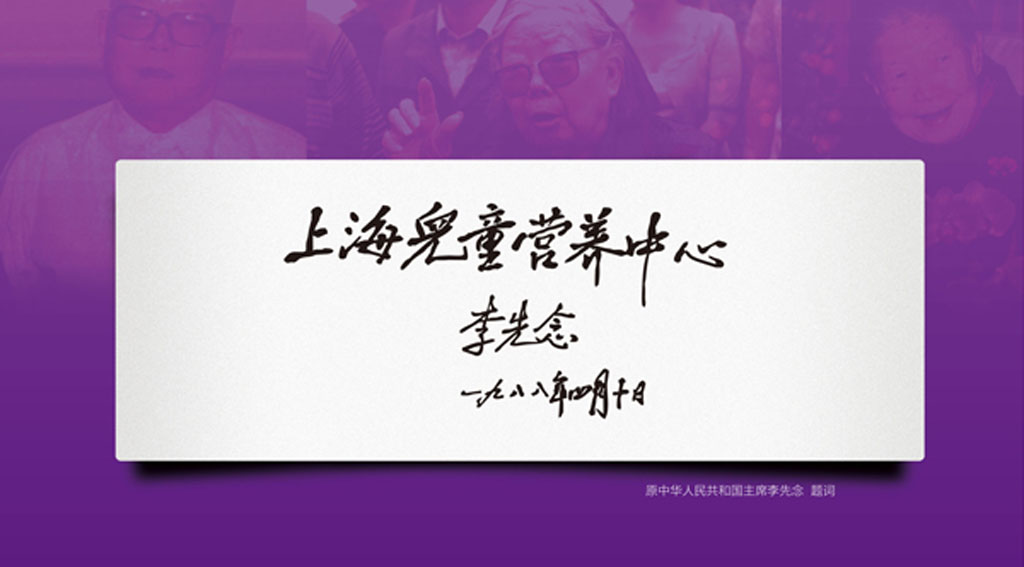 上海兒童营养中心
李先念
一九八八年四月十日
原中华人民共和国主席李先念 题词